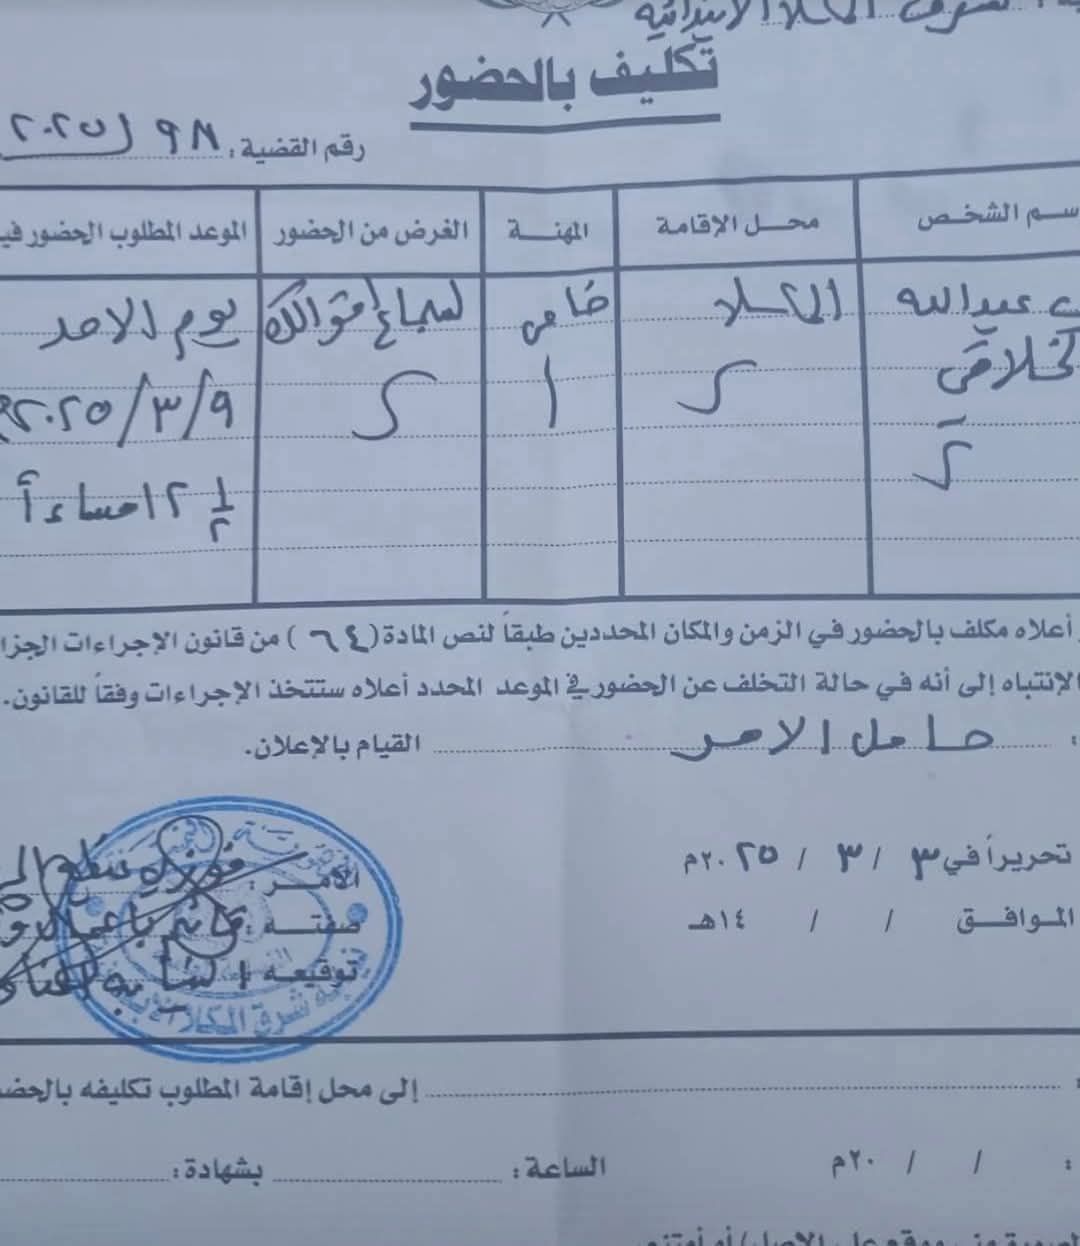 شرق المكلا الابتدائية
تكليف بالحضور
رقم القضية: ٩٨ / ٢٠٢٥
سم الشخص
محل الإقامة
المهنة
الغرض من الحضور
الموعد المطلوب الحضور في
عبدالله
المكلا
محامي
لسماع أقوالك
يوم الاحد
٢٠٢٥/٣/٩
١٢ ١/٢ مساءاً
أعلاه مكلف بالحضور في الزمن والمكان المحددين طبقاً لنص المادة (٦٤) من قانون الإجراءات الجزا
الإنتباه إلى أنه في حالة التخلف عن الحضور في الموعد المحدد أعلاه ستتخذ الإجراءات وفقاً للقانون.
: حامل الامر القيام بالإعلان.
تحريراً في ٣ / ٣ / ٢٠٢٥م
الموافق / / ١٤هـ
الآمر:
صفته: قائم باعمال
توقيعه
شرق المكلا
: إلى محل إقامة المطلوب تكليفه بالحض
: / / ٢٠م الساعة: بشهادة: